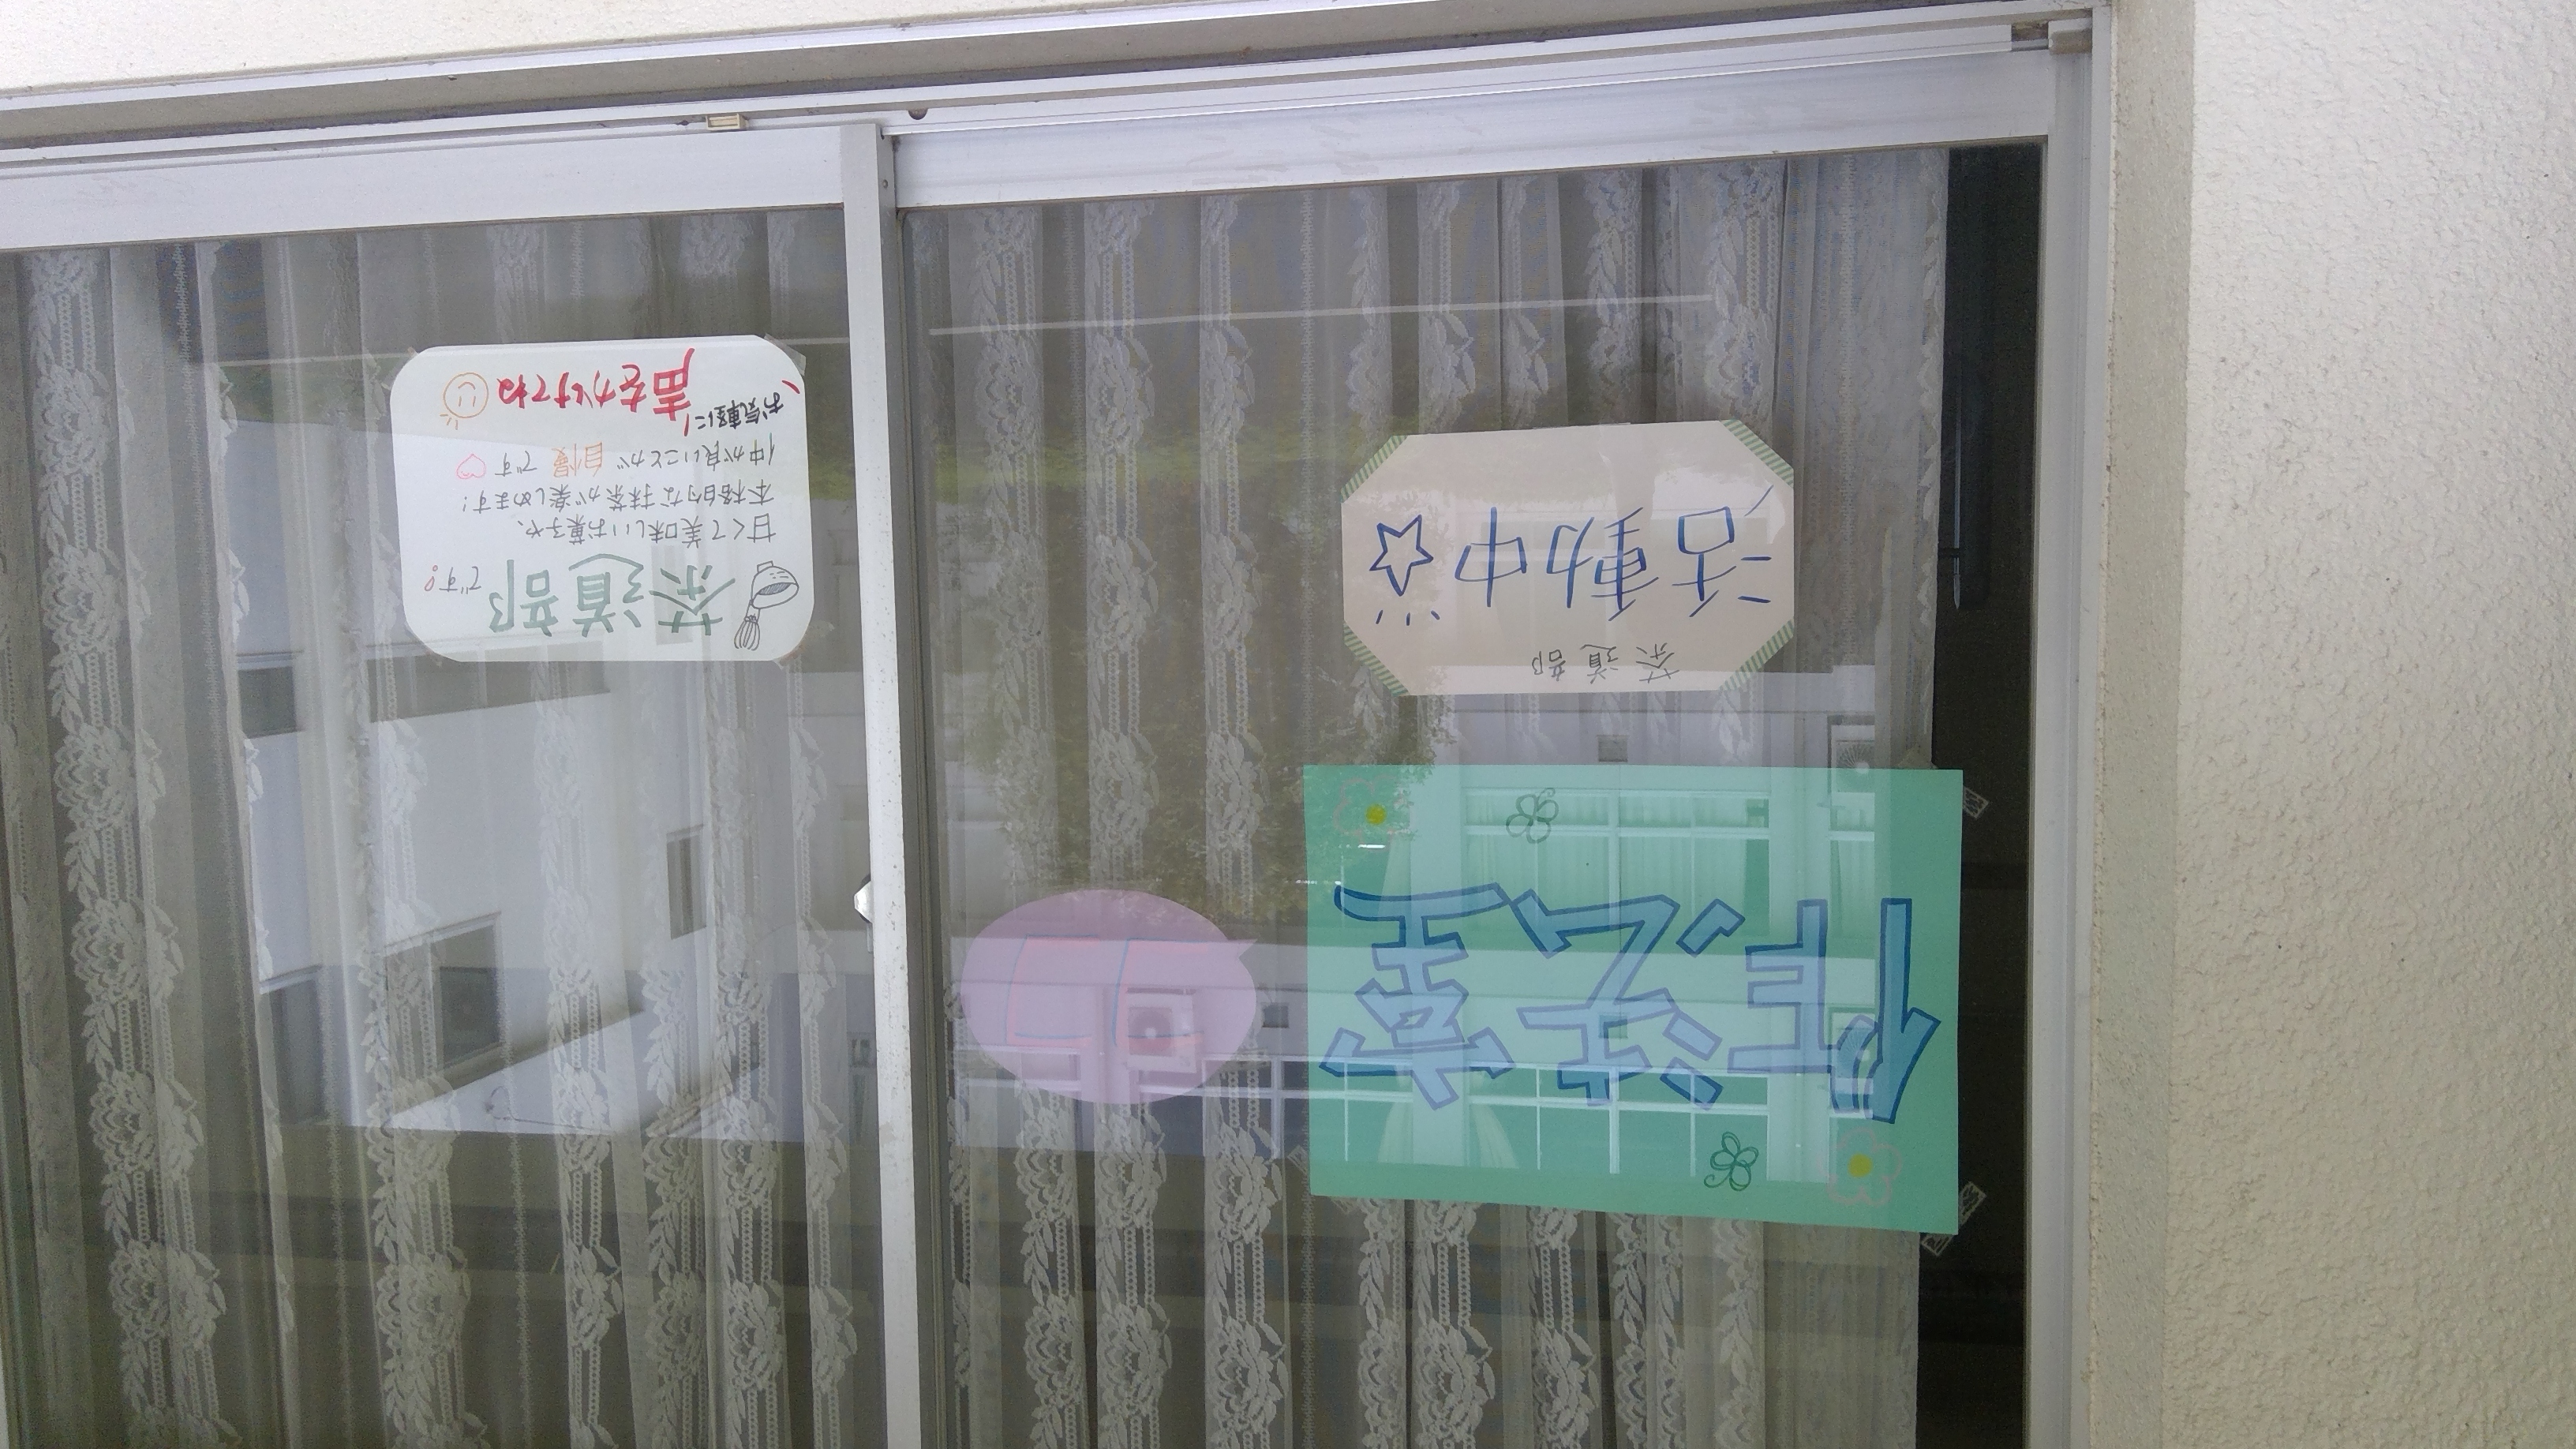 作法室
ココ
茶道部
活動中☆
茶道部です!
甘くて美味しいお菓子や、
本格的な抹茶が楽しめます!
仲が良いことが自慢です♡
お気軽に!
声をかけてね